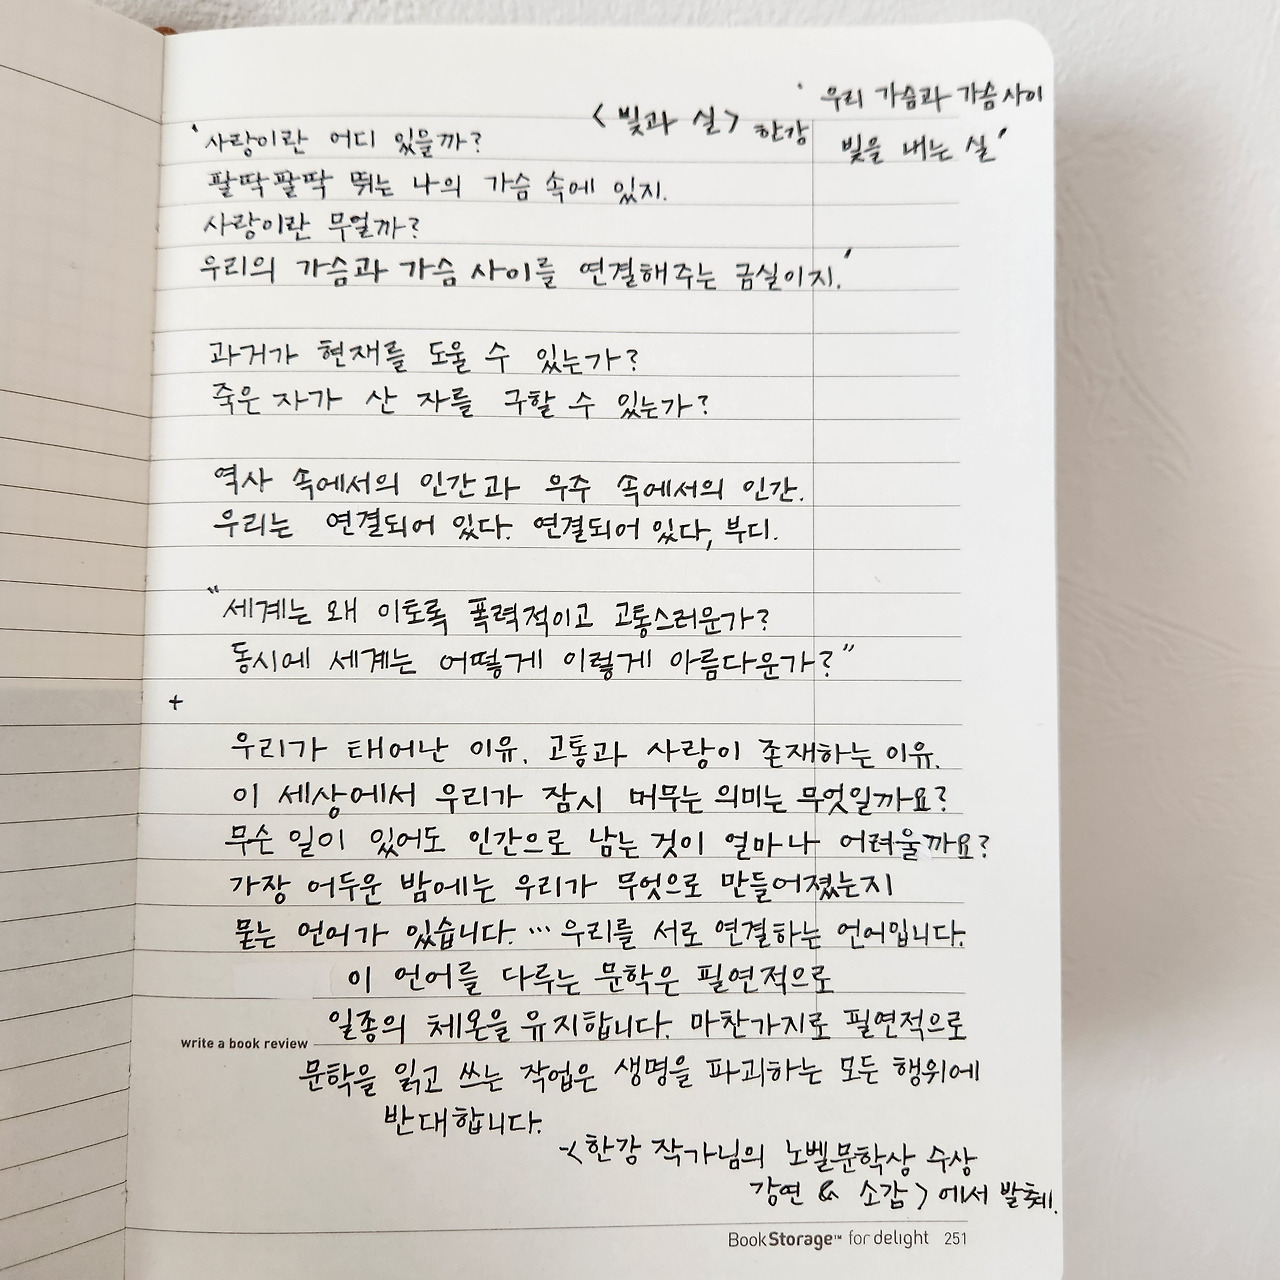 <빛과 실> 한강
'우리 가슴과 가슴 사이
빛을 내는 실'
'사랑이란 어디 있을까?
팔딱팔딱 뛰는 나의 가슴 속에 있지.
사랑이란 무얼까?
우리의 가슴과 가슴 사이를 연결해주는 금실이지.'
과거가 현재를 도울 수 있는가?
죽은 자가 산 자를 구할 수 있는가?
역사 속에서의 인간과 우주 속에서의 인간.
우리는 연결되어 있다. 연결되어 있다, 부디.
"세계는 왜 이토록 폭력적이고 고통스러운가?
동시에 세계는 어떻게 이렇게 아름다운가?"
+
우리가 태어난 이유. 고통과 사랑이 존재하는 이유.
이 세상에서 우리가 잠시 머무는 의미는 무엇일까요?
무슨 일이 있어도 인간으로 남는 것이 얼마나 어려울까요?
가장 어두운 밤에는 우리가 무엇으로 만들어졌는지
묻는 언어가 있습니다. … 우리를 서로 연결하는 언어입니다.
이 언어를 다루는 문학은 필연적으로
일종의 체온을 유지합니다. 마찬가지로 필연적으로
write a book review
문학을 읽고 쓰는 작업은 생명을 파괴하는 모든 행위에
반대합니다.
-<한강 작가님의 노벨문학상 수상
강연 & 소감>에서 발췌.
BookStorage™ for delight 251